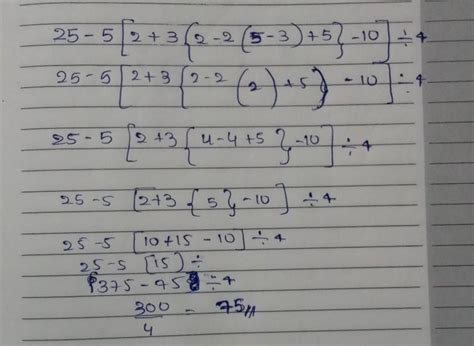 25 - 5 [2 + 3 {2 - 2 (5 - 3) + 5} - 10] ÷ 4
25 - 5 [2 + 3 {2 - 2 (2) + 5} - 10] ÷ 4
25 - 5 [2 + 3 {4 - 4 + 5} - 10] ÷ 4
25 - 5 [2 + 3 {5} - 10] ÷ 4
25 - 5 [10 + 15 - 10] ÷ 4
25 - 5 [15) ÷
{375 - 75} ÷ 4
300/4 = 75//